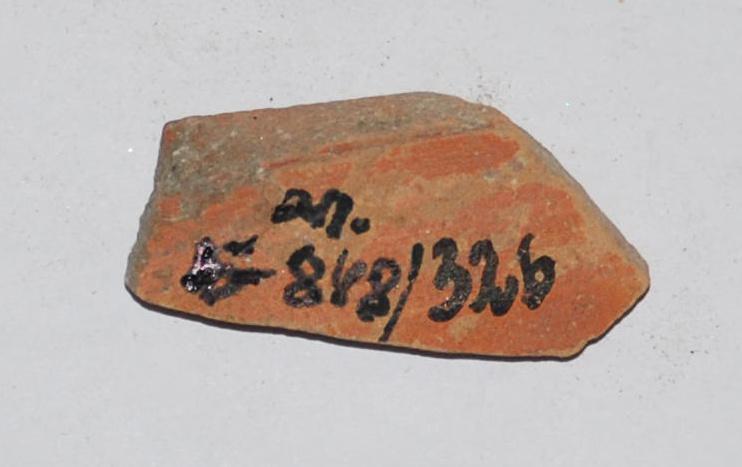 an.
848/326